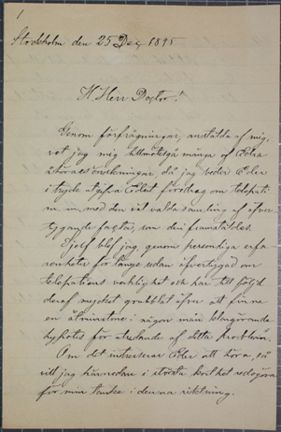 1
Stockholm den 25 Dec. 1895
H. Herr Doctor!
Genom förfrågningar, anställda af mig,
vet jag mig tillmötesgå många af Edra
åhörares önskningar, då jag beder Eder
i tryck utgifva Edert föredrag om telepati
m. m. med den väl valda samling af öfver-
tygande facta, som der framställdes.
Sjelf blef jag, genom personliga erfa-
renheter för länge sedan öfvertygad om
telepatiens verklighet och har till följd
deraf mycket grubblat öfver att finna
en åtminstone i någon mån
hypotes för af detta problem.
Om det intresserar Eder att höra, så
vill jag härnedan i största korthet redogöra
för min tanke i denna riktning.